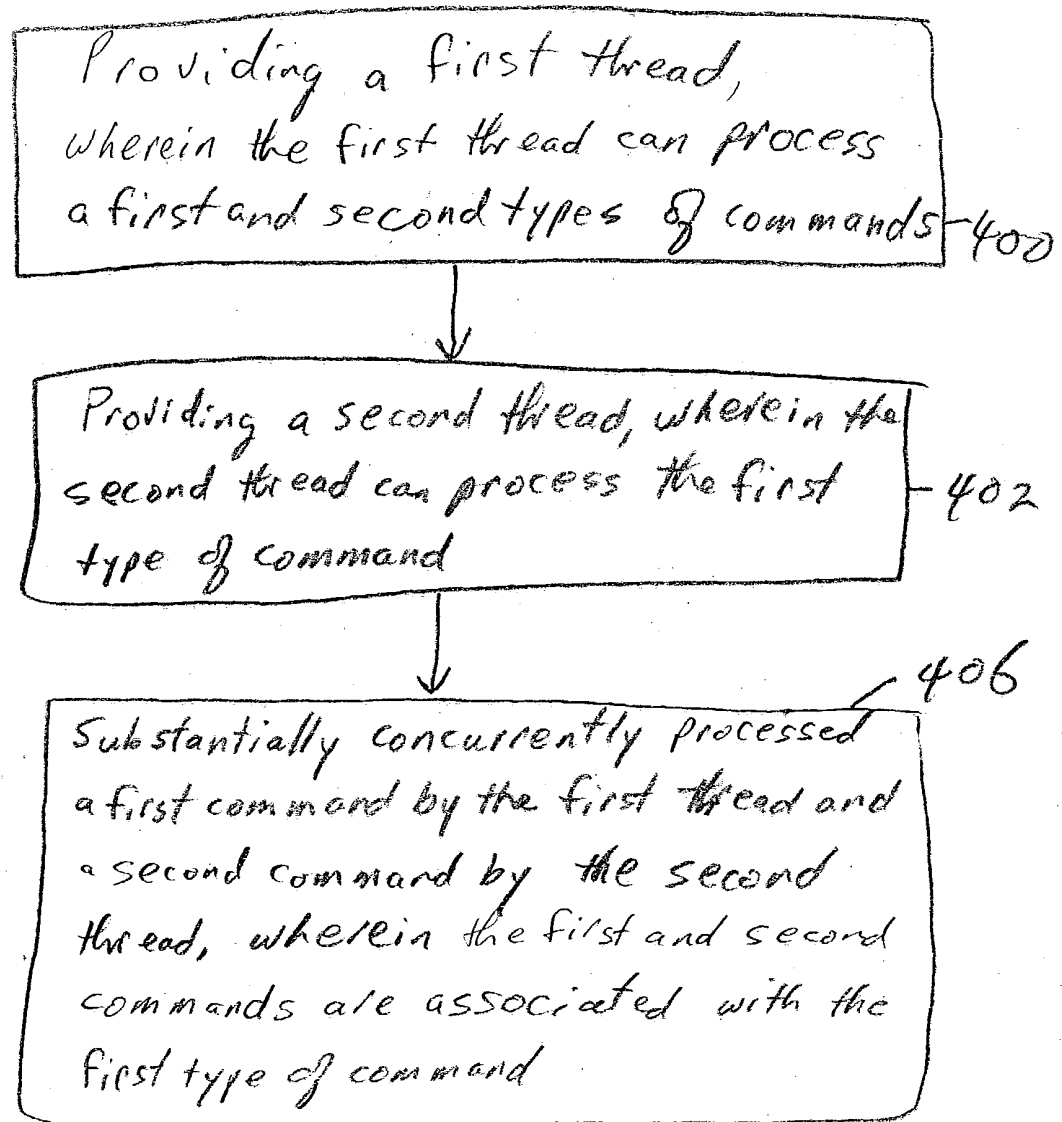 Providing a first thread,
wherein the first thread can process
a first and second types of commands
400
Providing a second thread, wherein the
second thread can process the first
type of command
402
406
Substantially concurrently processed
a first command by the first thread and
a second command by the second
thread, wherein the first and second
commands are associated with the
first type of command